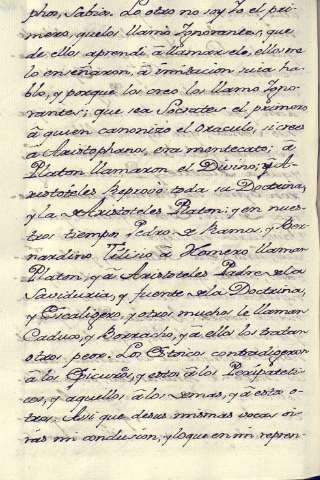 phos, Sabia. Lo otro no soy Yo el pri-
mero, que los llamò Ignorantes; que
de ellos aprendi à llamarselo, ellos me
lo enseñaron, à imitacion suia ha-
blo, y porque los creo los llamo Igno-
rantes; que sea Socrates el primero
à quien canonizò el Oraculo, si crees
à Aristophanes, era mentecato; à
Platon llamaron el Divino; y A-
ristoteles Reprovò toda su Doctrina,
y la de Aristoteles Platon: y en nues-
tros tiempos Pedro de Ramos, y Ber-
nardino Telisio à Homero llaman
Platon, y à Aristoteles Padre de la
Saviduria, y fuente de la Doctrina,
y Escaligero, y otros muchos le llaman
Caduco, y Borracho, y à ellos los tratan
otros peor. Los Estoicos contradigeron
à los Epicuros, y estos à los Peripateti-
cos, y aquellos à los demas, y à estos o-
tros: Asi que de sus mismas vocas oi-
ràs mi conclusion, y lo que en mi repren-